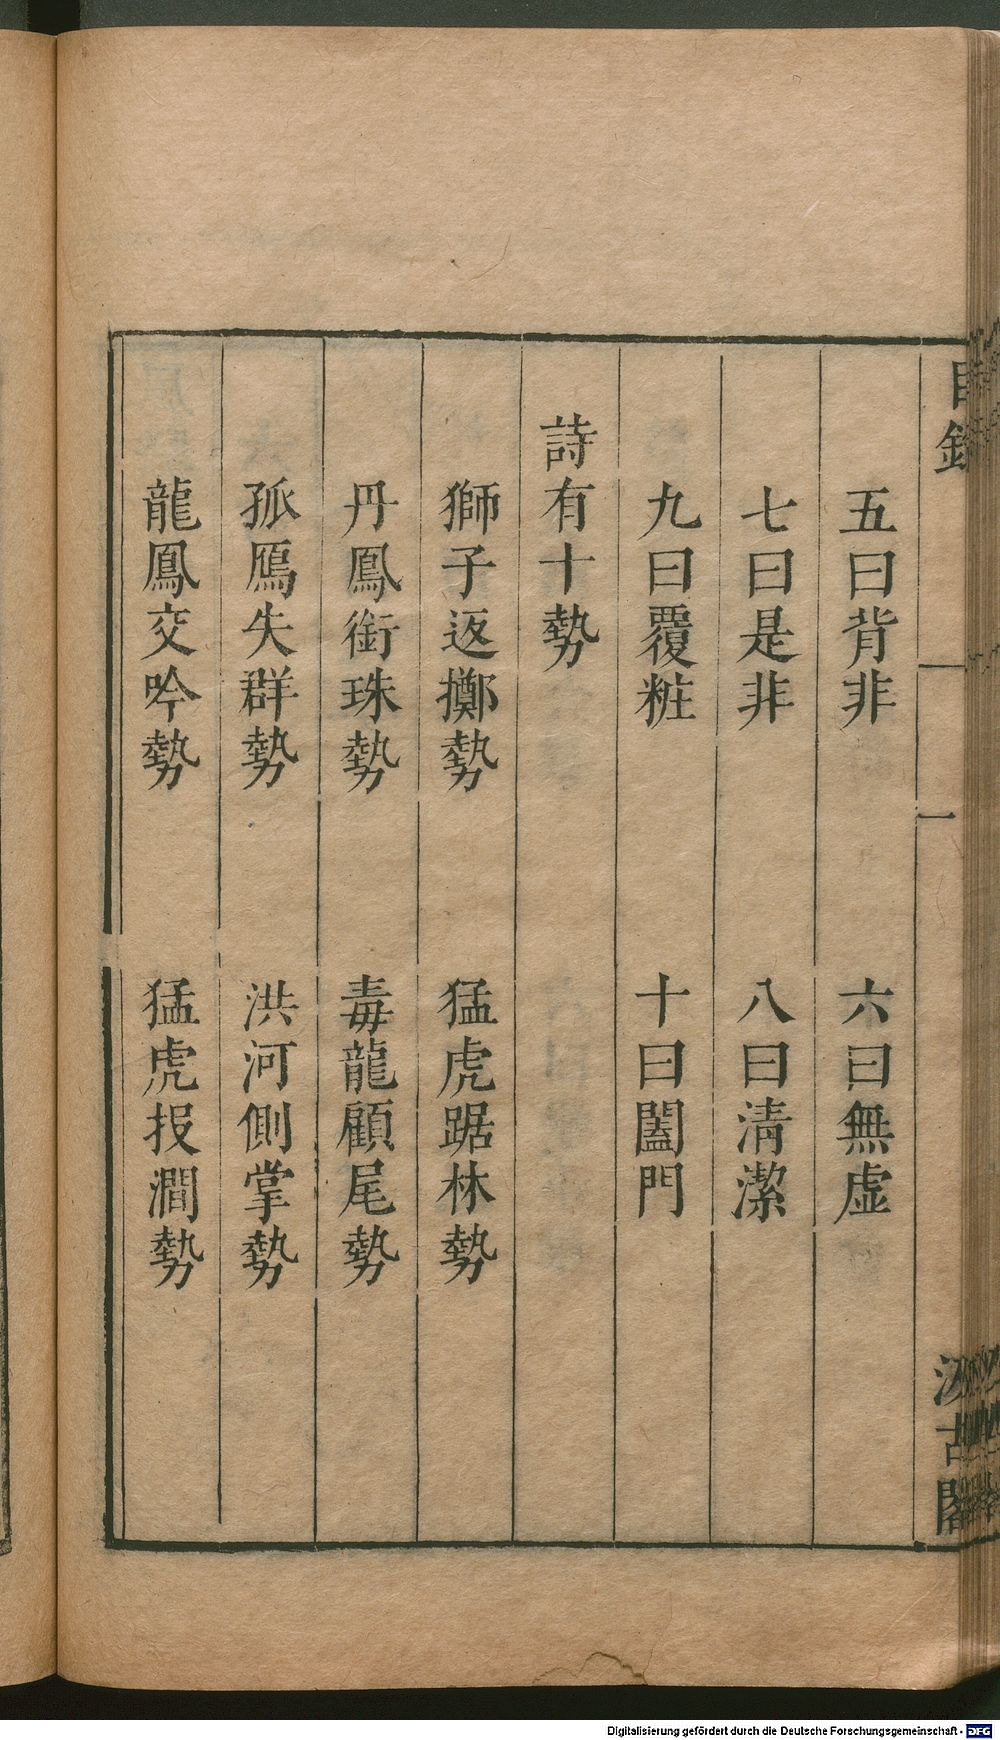 目錄
一
汲古閣
五曰背非　六曰無虛
七曰是非　八曰清潔
九曰覆粧　十曰闔門
詩有十勢
獅子返擲勢　猛虎踞林勢
丹鳳銜珠勢　毒龍顧尾勢
孤鴈失群勢　洪河側掌勢
龍鳳交吟勢　猛虎投澗勢
Digitalisierung gefördert durch die Deutsche Forschungsgemeinschaft - DFG